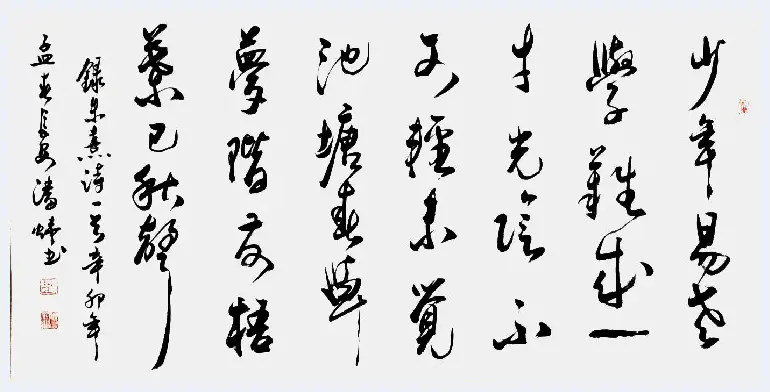 少年易老
學難成一
寸光陰不
可輕未覺
池塘春草
夢階前梧
葉已秋聲
錄朱熹詩一首辛卯年
孟春長安潘書